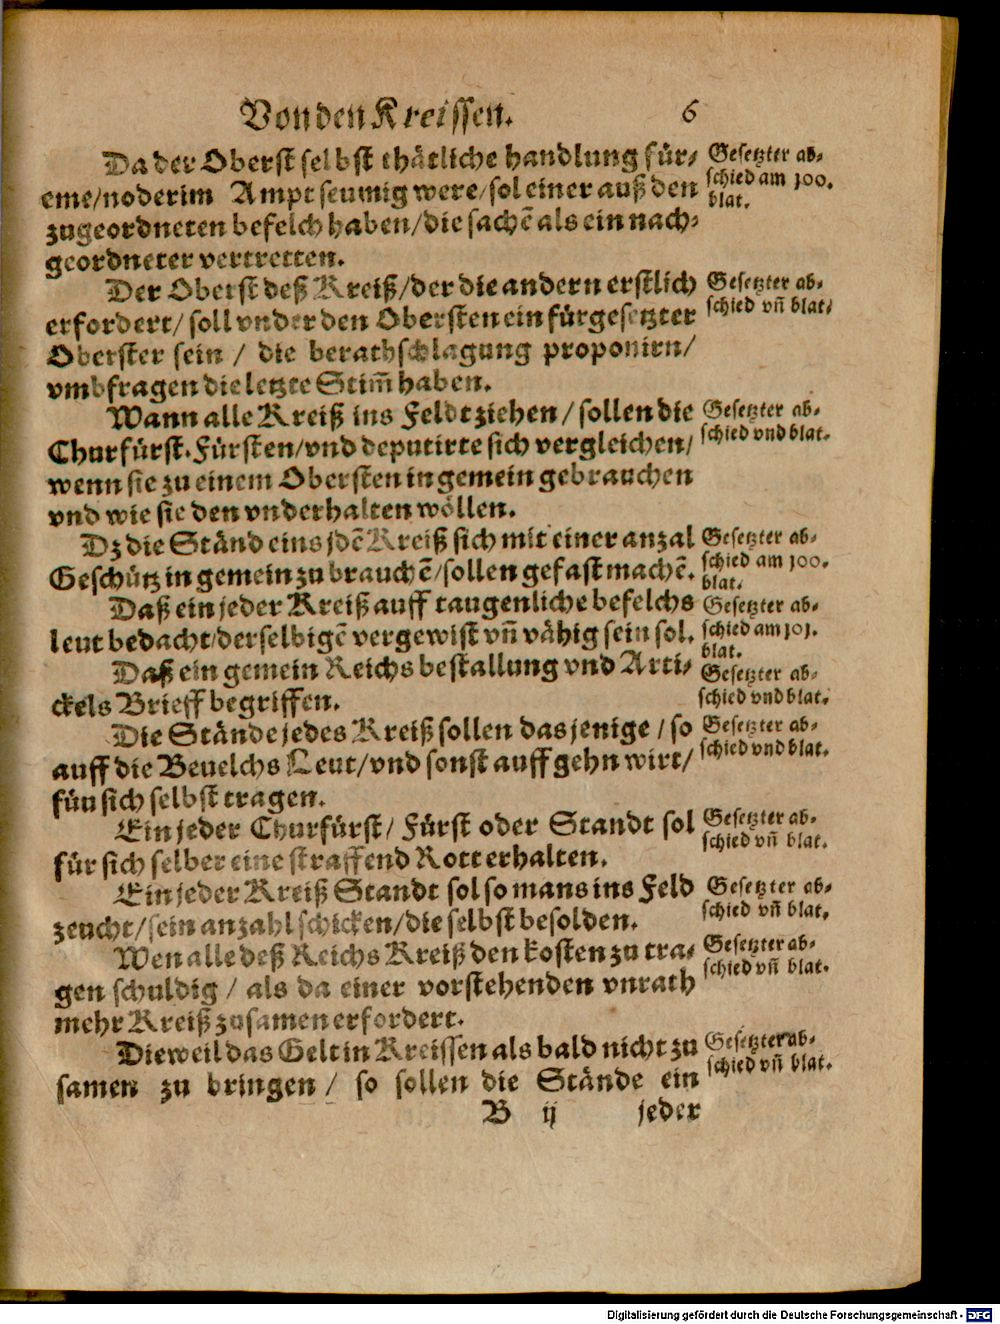 Von den Kreissen. 6
Da der Oberst selbst thätliche handlung für⸗
eme/ noder im Ampt seumig were/ sol einer auß den
zugeordneten befelch haben/ die sachē als ein nach⸗
geordneter vertretten.
Gesetzter ab⸗
schied am 100.
blat.
Der Oberst deß Kreiß/ der die andern erstlich
erfordert/ soll vnder den Obersten ein fürgesetzter
Oberster sein / die berathschlagung proponirn/
vmbfragen die letzte Stim̄ haben.
Gesetzter ab⸗
schied vn̄ blat/
Wann alle Kreiß ins Feldt ziehen / sollen die
Churfürst. Fürsten/ vnd deputirte sich vergleichen/
wenn sie zu einem Obersten in gemein gebrauchen
vnd wie sie den vnderhalten wöllen.
Gesetzter ab⸗
schied vnd blat.
Dz die Ständ eins jdē Kreiß sich mit einer anzal
Geschütz in gemein zu brauchē/ sollen gefast machē.
Gesetzter ab⸗
schied am 100.
blat.
Daß ein jeder Kreiß auff taugenliche befelchs
leut bedacht/ derselbigē vergewist vn̄ vähig sein sol.
Gesetzter ab⸗
schied am 101.
blat.
Daß ein gemein Reichs bestallung vnd Arti⸗
ckels Brieff begriffen.
Gesetzter ab⸗
schied vnd blat.
Die Stände jedes Kreiß sollen das jenige / so
auff die Beuelchs Leut/ vnd sonst auff gehn wirt/
fün sich selbst tragen.
Gesetzter ab⸗
schied vnd blat.
Ein jeder Churfürst/ Fürst oder Standt sol
für sich selber eine straffend Rott erhalten.
Gesetzter ab⸗
schied vn̄ blat.
Ein jeder Kreiß Standt sol so mans ins Feld
zeucht/ sein anzahl schicken/ die selbst besolden.
Gesetzter ab⸗
schied vn̄ blat.
Wen alle deß Reichs Kreiß den kosten zu tra⸗
gen schuldig / als da einer vorstehenden vnrath
mehr Kreiß zusamen erfordert.
Gesetzter ab⸗
schied vn̄ blat.
Dieweil das Gelt in Kreissen als bald nicht zu
samen zu bringen / so sollen die Stände ein
Gesetzter ab⸗
schied vn̄ blat.
B ij jeder
Digitalisierung gefördert durch die Deutsche Forschungsgemeinschaft - DFG